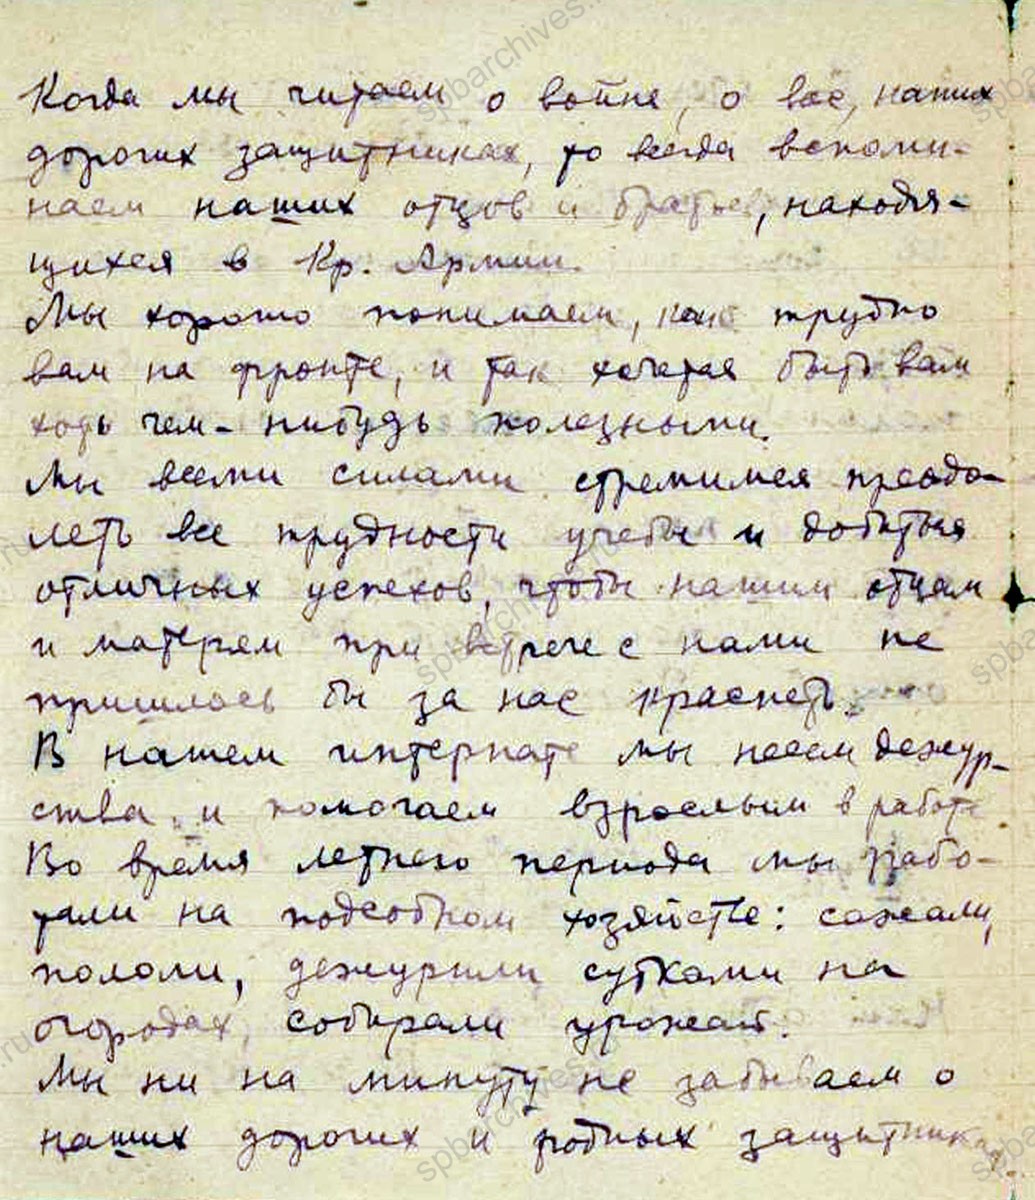 Когда мы читаем о войне, о вас, наших
дорогих защитниках, то всегда вспоми-
наем наших отцов и братьев, находя-
щихся в Кр. Армии.
Мы хорошо понимаем, как трудно
вам на фронте, и так хочется быть вам
хоть чем-нибудь полезными.
Мы всеми силами стремимся преодо-
леть все трудности учебы и добиться
отличных успехов, чтобы нашим отцам
и матерям при встрече с нами не
пришлось бы за нас краснеть.
В нашем интернате мы несем дежур-
ства и помогаем взрослым в работе
Во время летнего периода мы рабо-
тали на подсобном хозяйстве: сажали,
пололи, дежурили сутками на
огородах, собирали урожай.
Мы ни на минуту не забываем о
наших дорогих и родных защитниках
spbarchives.ru